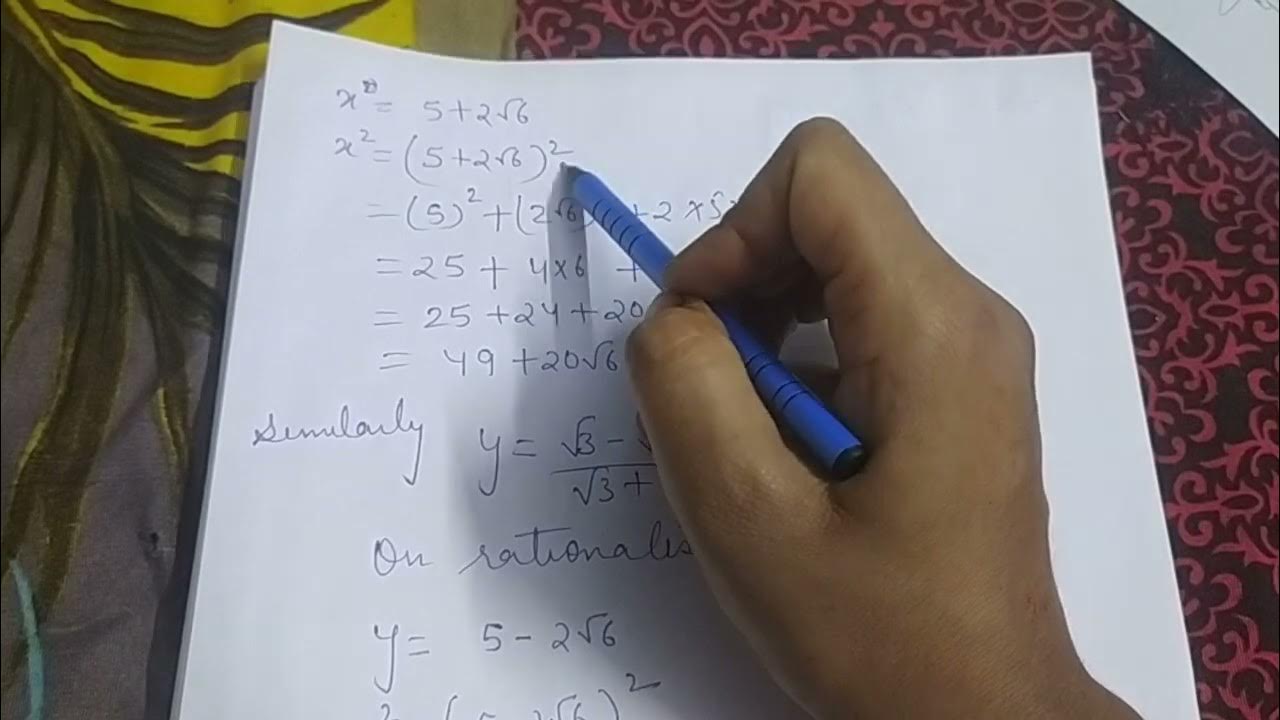 x = 5+2√6
x² = (5+2√6)²
= (5)² + (2√6) +2 ×5×
= 25 + 4×6 +
= 25 +24 +20
= 49 +20√6
Similarly y = √3 - √ / √3 +
On rationalis
y = 5 - 2√6
² (5 - 2√6)²